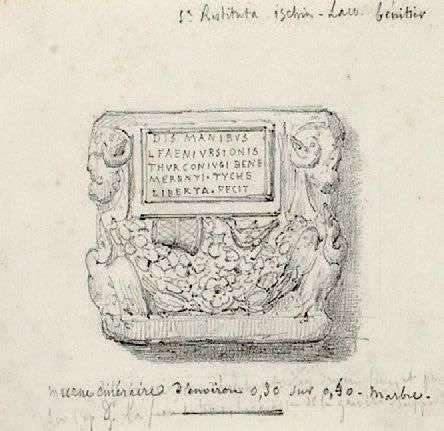 Sᵃ Restituta ischia - Laco. bénitier
DIS MANIBVS
L FAENI VRSIONIS
THVR CONIVGI BENE
MERENTI · TYCHE
LIBERTA · FECIT
urne cinéraire d'environ 0,30 sur 0,40 - Marbre.